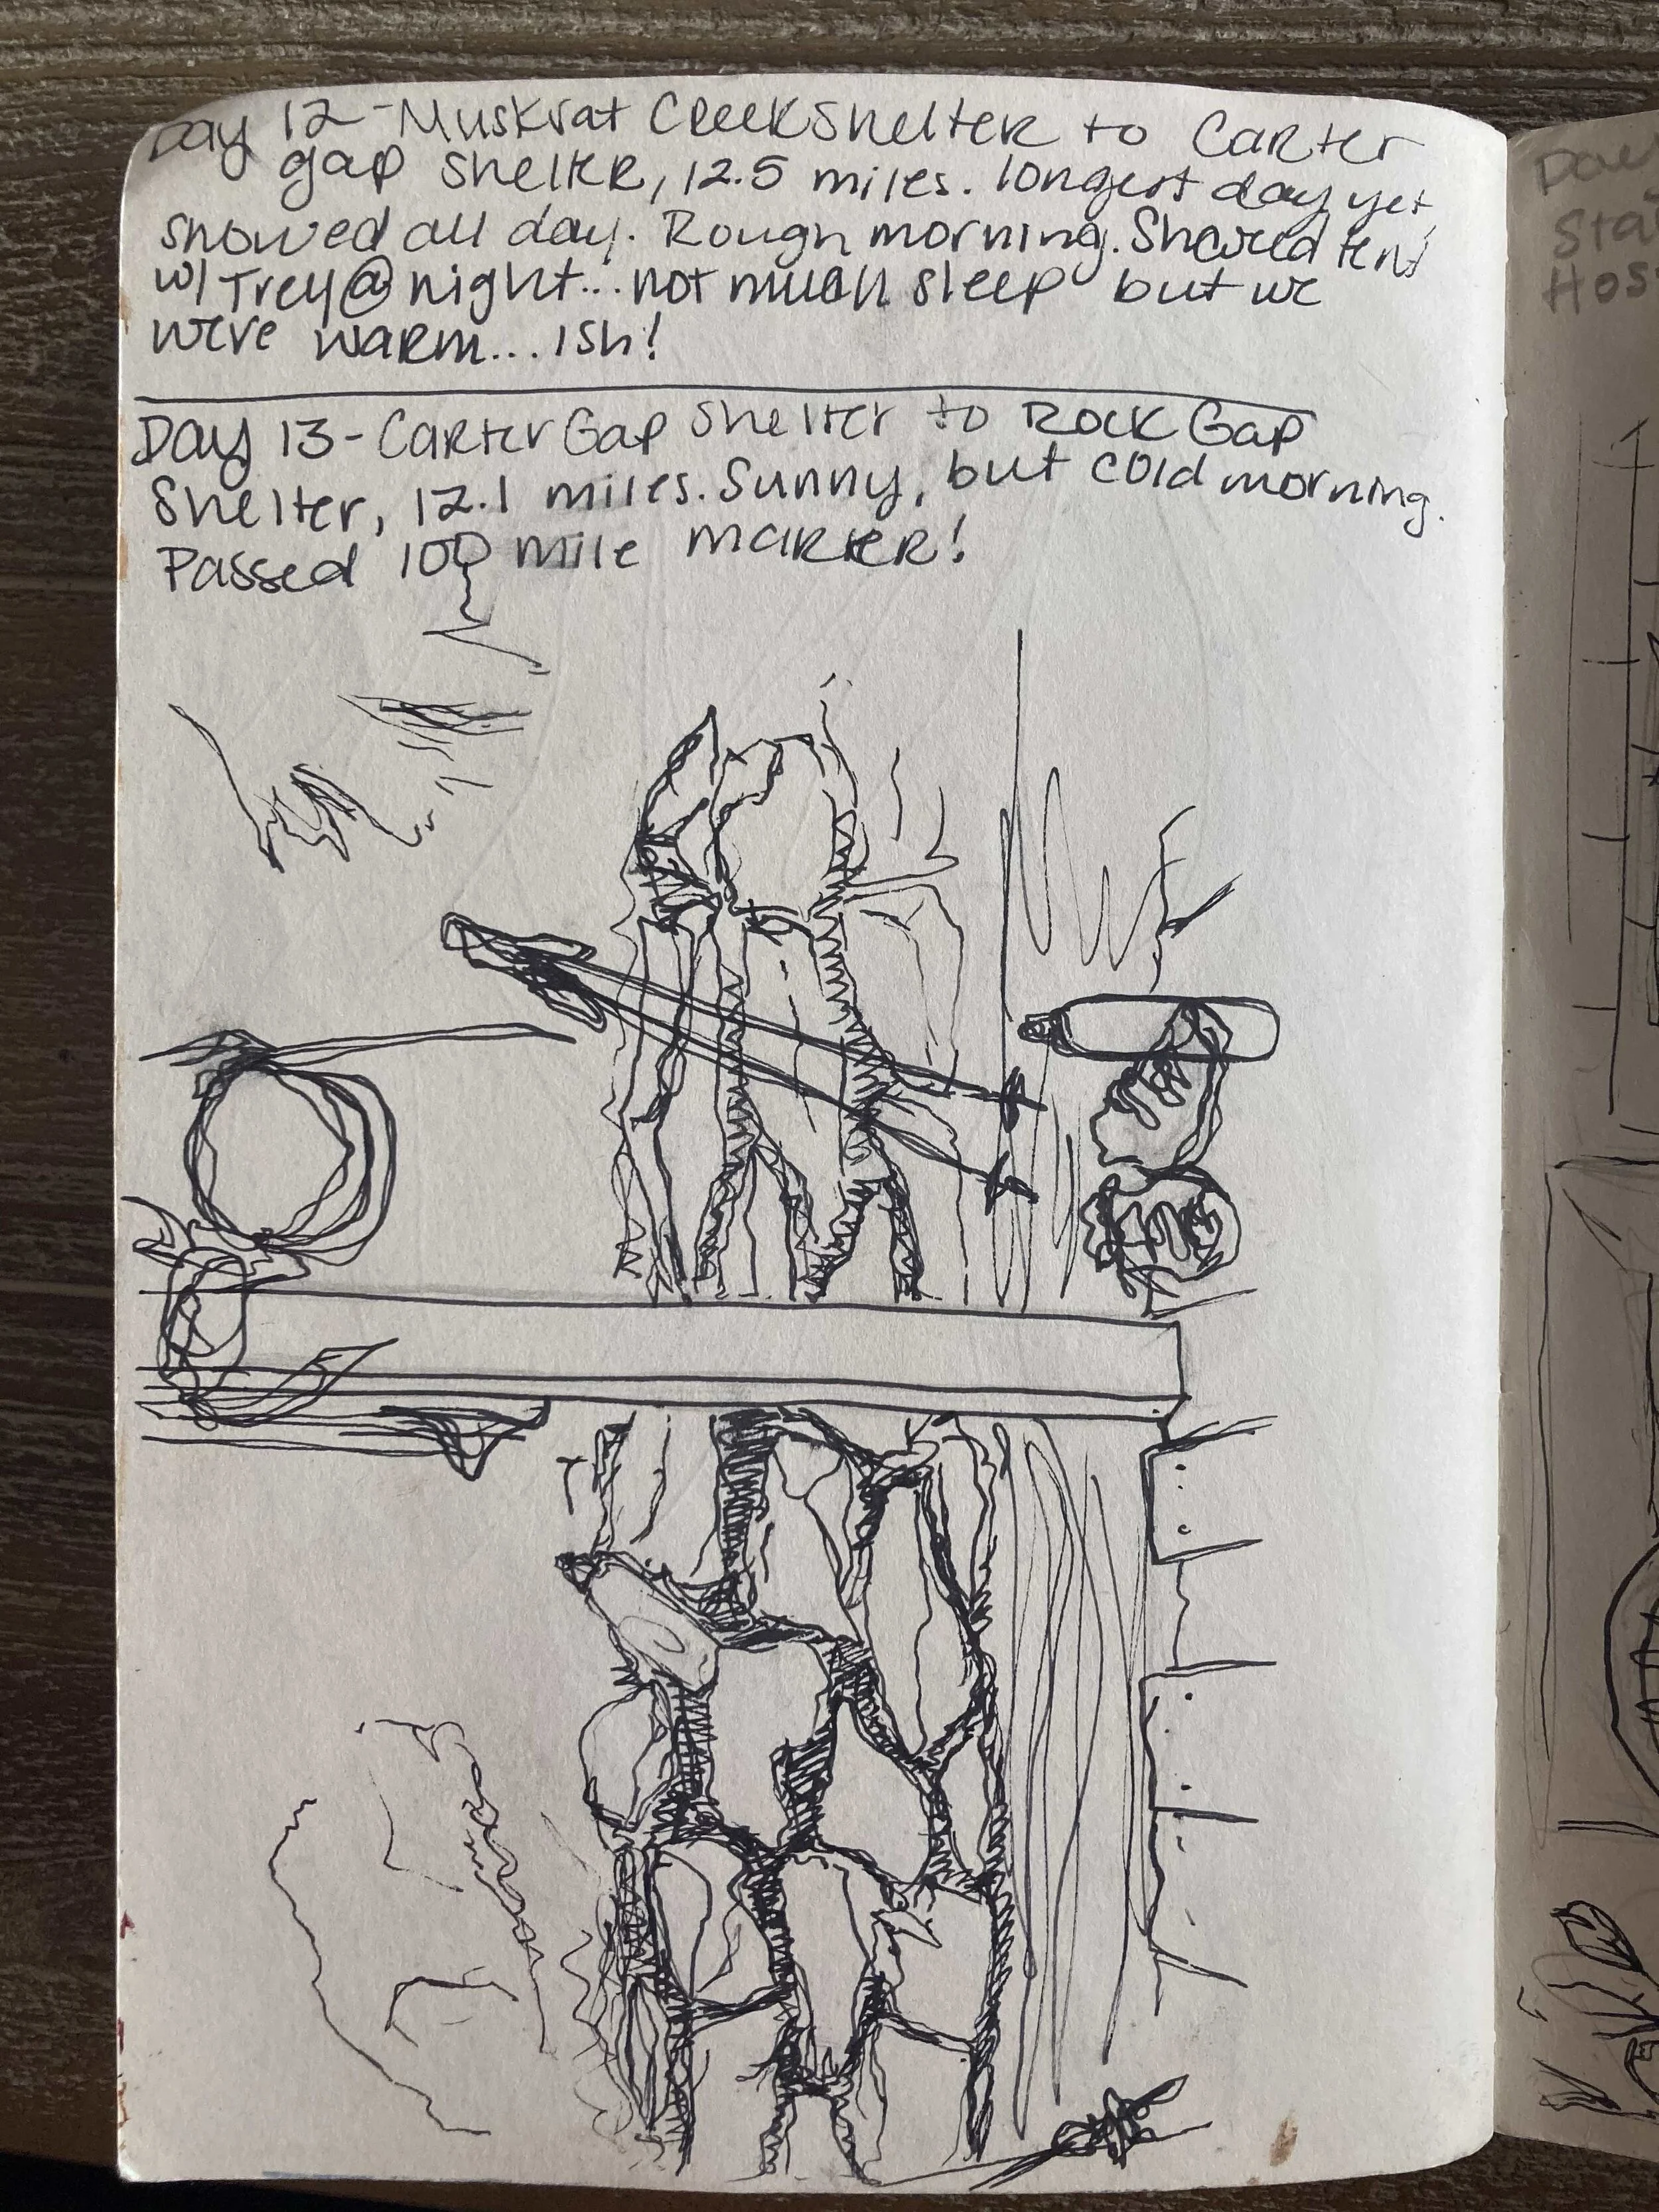 Day 12 - Muskrat Creek Shelter to Carter
gap shelter, 12.5 miles. longest day yet,
snowed all day. Rough morning. Shared tent
w/ Trey @ night... not much sleep but we
were warm... ish!
Day 13 - Carter Gap Shelter to Rock Gap
Shelter, 12.1 miles. Sunny, but cold morning.
Passed 100 mile marker!